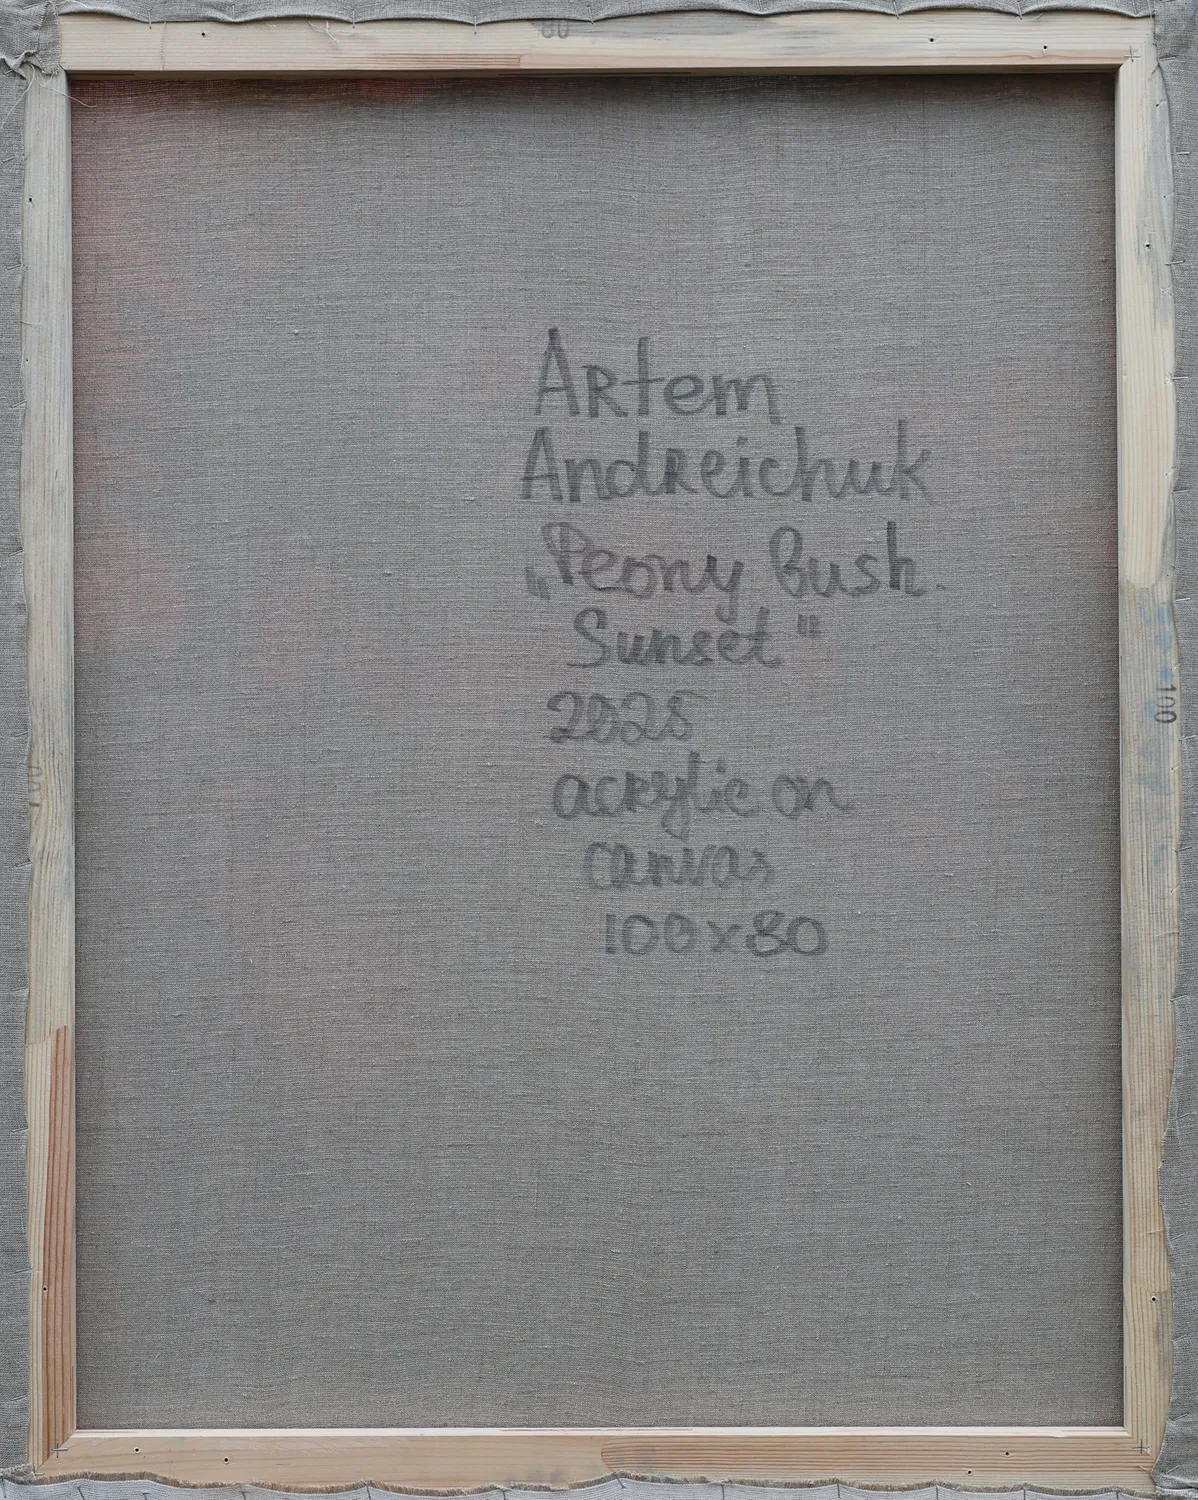 80
Artem
Andreichuk
„Peony Bush.
Sunset"
2025
acrylic on
canvas
100x80
100
100